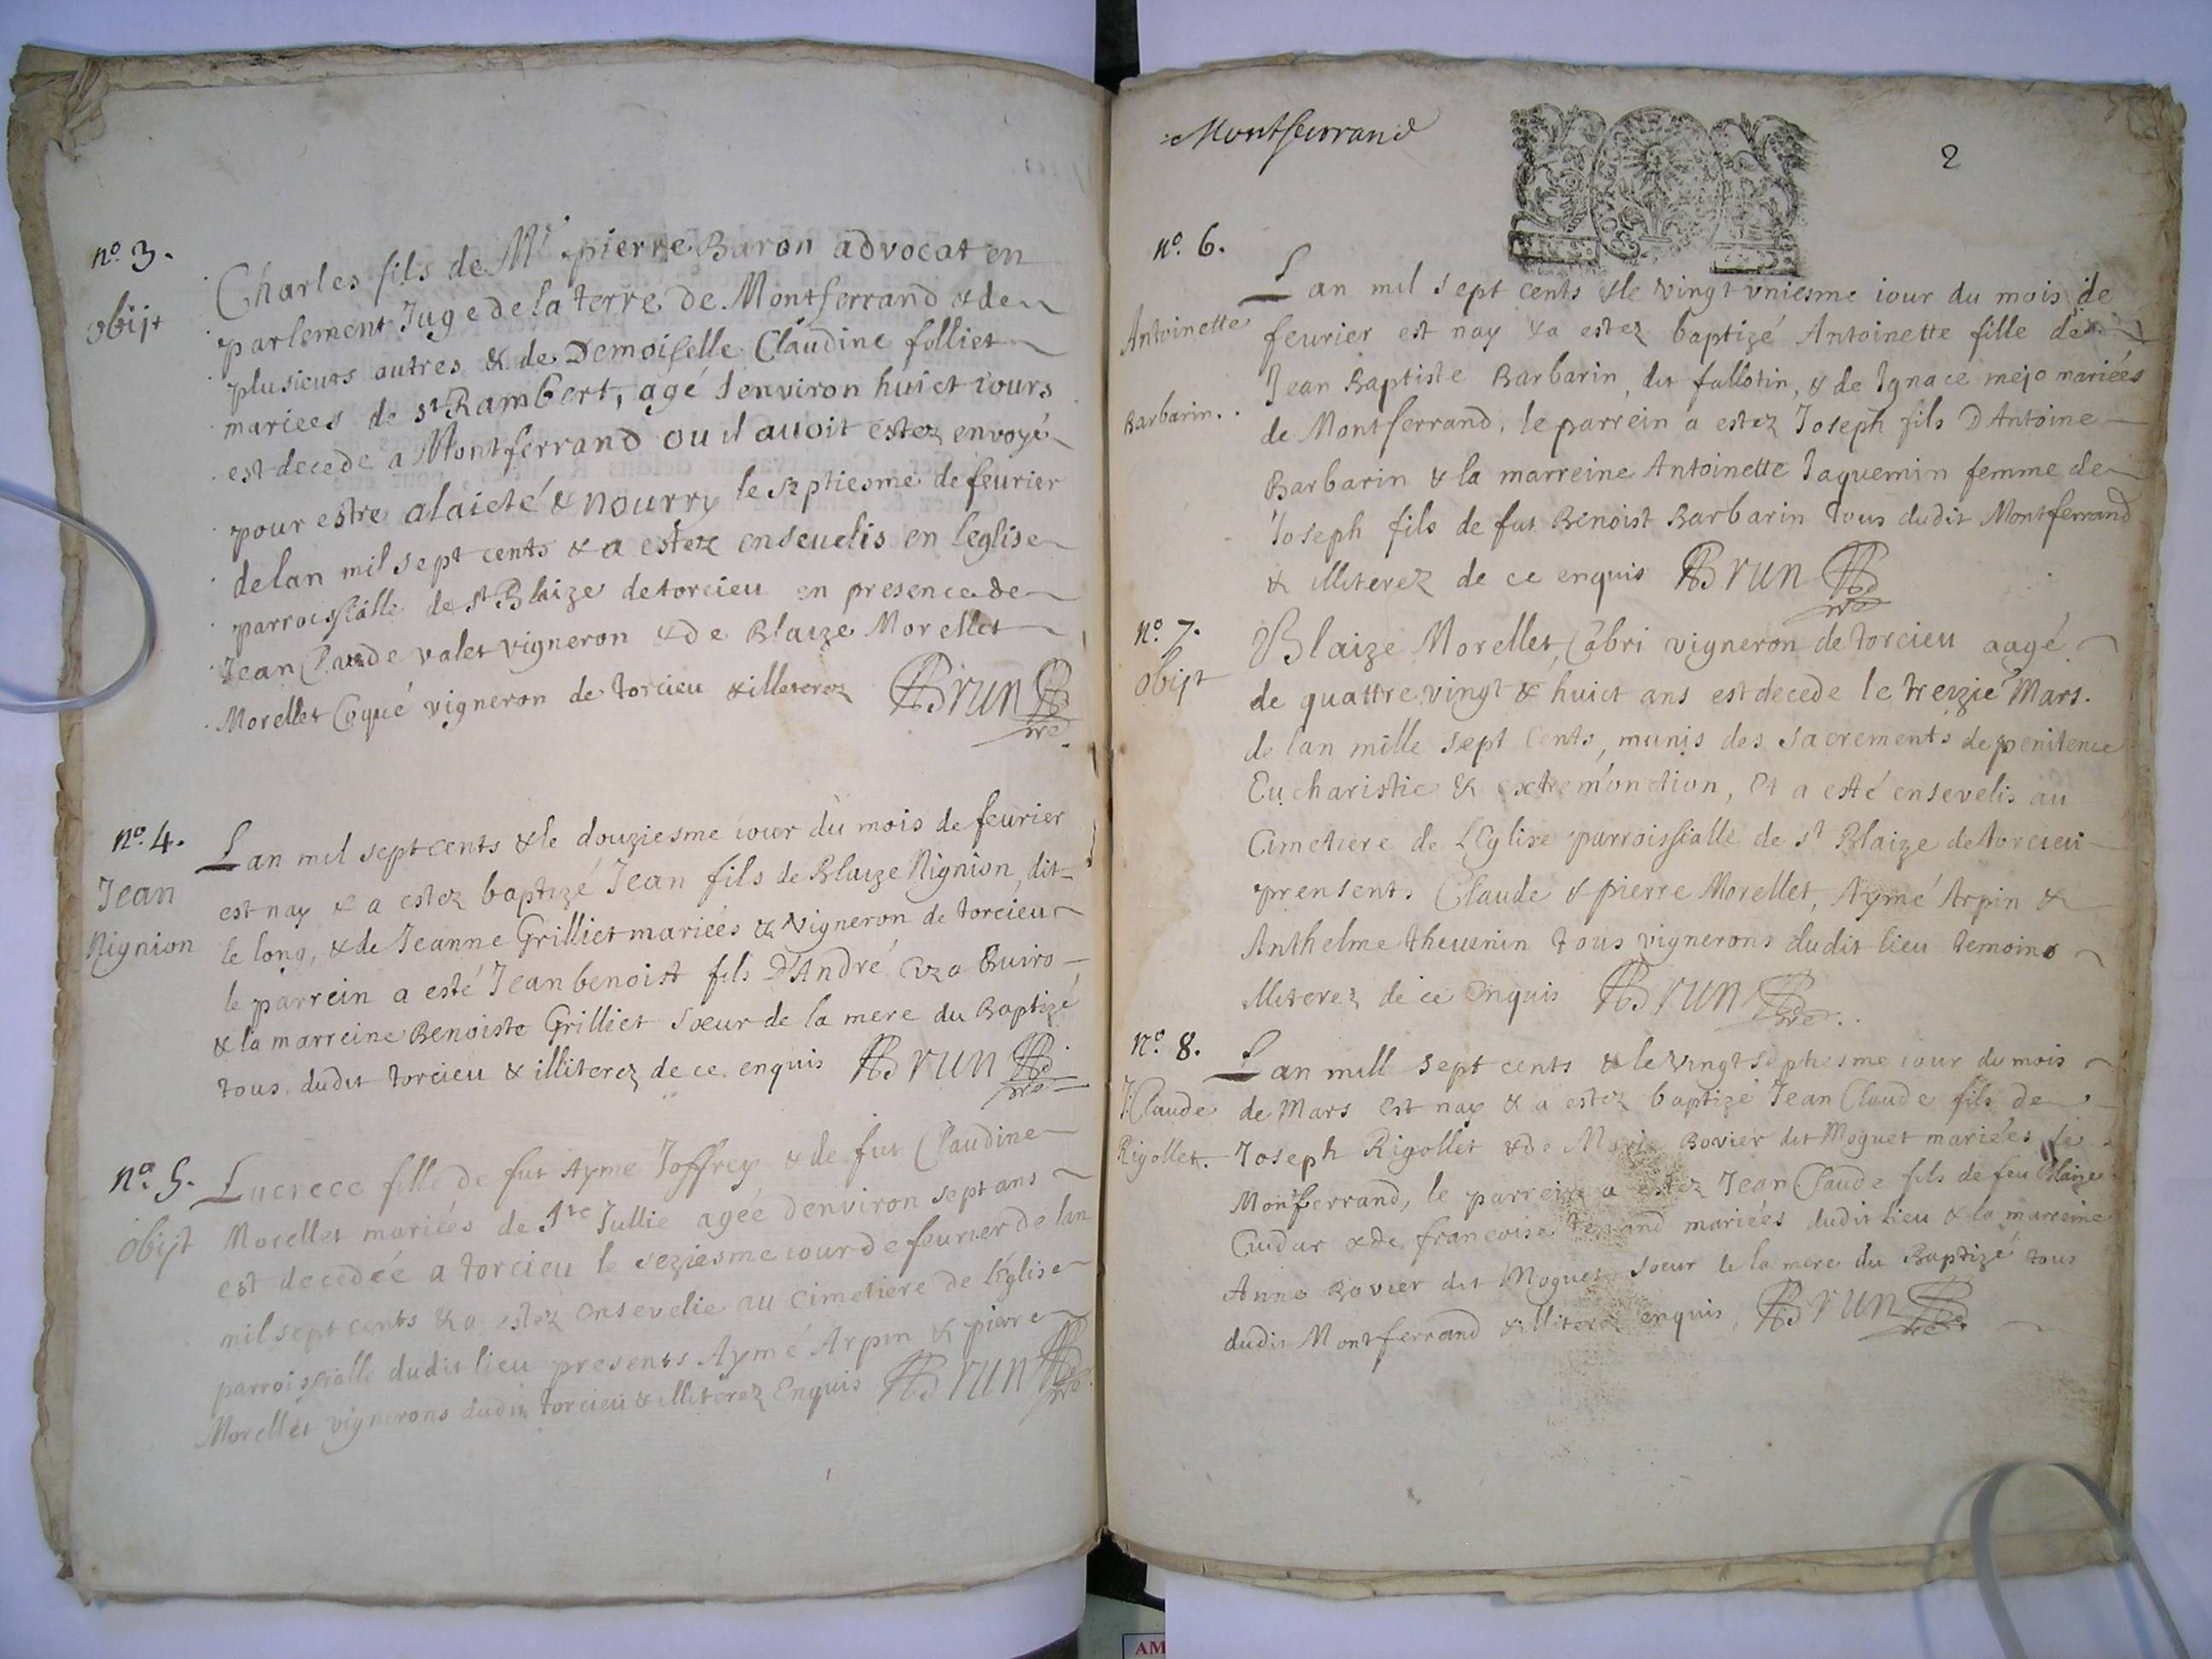 n.º 3.
obijt
Charles fils de Mr pierre Baron advocat en
parlement Juge de la terre de Montferrand & de
plusieurs autres & de Demoiselle Claudine folliet
mariees de st Rambert, agé denviron huict iours
est decedé a Montferrand ou il auoit estez envoyé
pour estre alaicté & nourry le septiesme de feurier
delan mil sept cents & a estez enseuelis en leglise
parroissialle de st Blaize de torcieu en presence de
Jean Claude valet vigneron & de Blaize Morellet
Morellet Coqué vigneron de torcieu & illeterez Brun
n.º 4.
Jean
Nignion
Lan mil sept cents & le douziesme iour du mois de feurier
est nay & a estez baptizé Jean fils de Blaize Nignion, dit
le long, & de Jeanne Grilliet mariées & vigneron de torcieu
le parrein a esté Jean benoist fils D'André Buiro
& la marreine Benoiste Grilliet sœur de la mere du Baptizé
tous dudit torcieu & illiterez de ce enquis Brun
n.º 5.
obijt
Lucrece fille de fut Ayme Joffrey & de fut Claudine
Morellet mariées de Ste Jullie agée denviron sept ans
est decedée a torcieu le seziesme iour de feurier de lan
mil sept cents & a estez ensevelie au cimetiere de léglise
parroissialle dudit lieu presents Aymé Arpin & pierre
Morellet vignerons dudit torcieu & illiterez Enquis Brun
Montferrand
2
n.º 6.
Antoinette
Barbarin.
Lan mil sept cents & le vingt vniesme iour du mois de
feurier est nay & a estez baptizé Antoinette fille de
Jean Baptiste Barbarin, dit fallotin, & de Ignace mejo mariées
de Montferrand, le parrein a estez Joseph fils D Antoine
Barbarin & la marreine Antoinette Jaquemin femme de
Joseph fils de fut Benoist Barbarin tous dudit Montferrand
& illiterez de ce enquis Brun
n.º 7.
obijt
Blaize Morellet, Cabri vigneron de torcieu aagé
de quattre vingt & huict ans est decede le treizie Mars.
de lan mille sept Cents, munis des sacrements de penitence
Eucharistie & extrem'onction, Et a esté ensevelis au
Cimetiere de LEglise parroissialle de st Blaize de torcieu
prensents Claude & pierre Morellet, Aymé Arpin &
Anthelme theuenin tous vignerons dudit lieu temoins
illiterez de ce Enquis Brun
n.º 8.
J. Claude
Rigollet.
Lan mill sept cents & le vingt septiesme iour du mois
de Mars est nay & a estez baptizé Jean Claude fils de
Joseph Rigollet & de Marie Bovier dit Moguet mariées de
Monferrand, le parrein a estez Jean Claude fils de feu Blaize
Cuidar & de francoise mariées dudit lieu & la marreine
Anne Bovier dit Moguet sœur de la mere du Baptizé tous
dudit Montferrand & illiterez enquis, Brun
AM